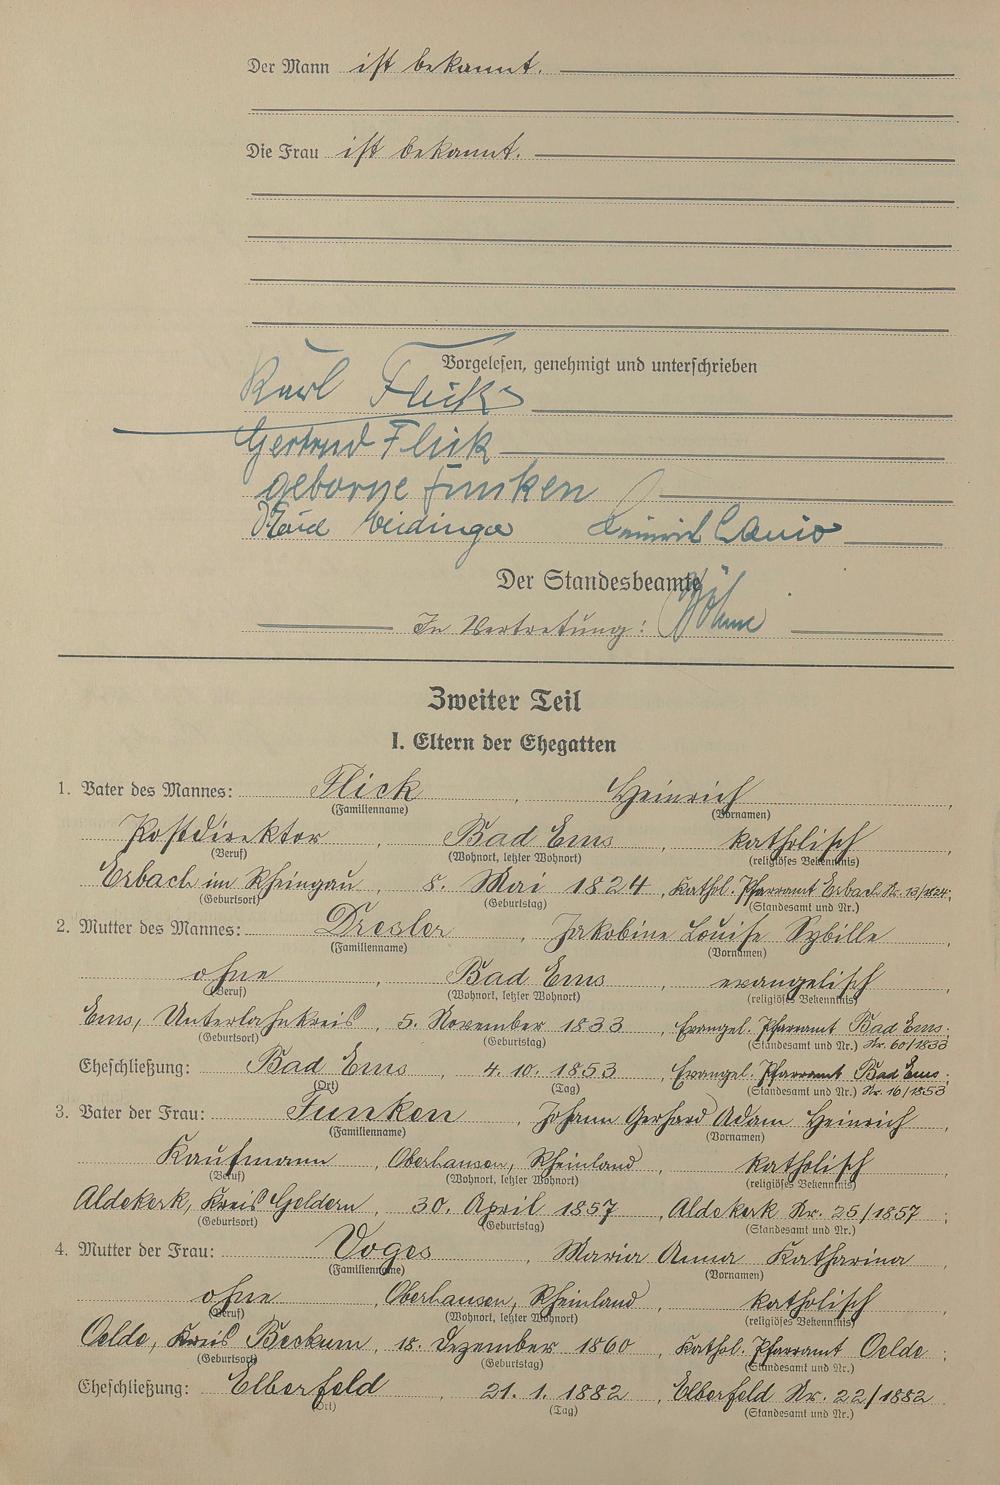 Der Mann ist bekannt.
Die Frau ist bekannt.
Vorgelesen, genehmigt und unterschrieben
Karl Flick
Gertrud Flick
geborne Funken
Weidinger Heinrich
Der Standesbeamte
In Vertretung: Böhme
Zweiter Teil
I. Eltern der Ehegatten
1. Vater des Mannes: Flick, Heinrich,
(Familienname) (Vornamen)
Postdirektor, Bad Ems, katholisch,
(Beruf) (Wohnort, letzter Wohnort) (religiöses Bekenntnis)
Erbach im Rheingau, 8. Mai 1824, Kathol. Pfarramt Erbach Nr. 13/1824;
(Geburtsort) (Geburtstag) (Standesamt und Nr.)
2. Mutter des Mannes: Dresler, Jakobine Louise Sybille,
(Familienname) (Vornamen)
ohne, Bad Ems, evangelisch,
(Beruf) (Wohnort, letzter Wohnort) (religiöses Bekenntnis)
Ems, Unterlahnkreis, 5. November 1833, Evangel. Pfarramt Bad Ems.
(Geburtsort) (Geburtstag) (Standesamt und Nr.) Nr. 60/1833
Eheschließung: Bad Ems, 4. 10. 1853, Evangel. Pfarramt Bad Ems;
(Ort) (Tag) (Standesamt und Nr.) Nr. 16/1853
3. Vater der Frau: Funken, Johann Gerhard Adam Heinrich,
(Familienname) (Vornamen)
Kaufmann, Oberhausen, Rheinland, katholisch,
(Beruf) (Wohnort, letzter Wohnort) (religiöses Bekenntnis)
Aldekerk, Kreis Geldern, 30. April 1857, Aldekerk Nr. 25/1857;
(Geburtsort) (Geburtstag) (Standesamt und Nr.)
4. Mutter der Frau: Voges, Maria Anna Katharina,
(Familienname) (Vornamen)
ohne, Oberhausen, Rheinland, katholisch,
(Beruf) (Wohnort, letzter Wohnort) (religiöses Bekenntnis)
Oelde, Kreis Beckum, 18. Dezember 1860, Kathol. Pfarramt Oelde;
(Geburtsort) (Geburtstag) (Standesamt und Nr.)
Eheschließung: Elberfeld, 21. 1. 1882, Elberfeld Nr. 22/1882
(Ort) (Tag) (Standesamt und Nr.)